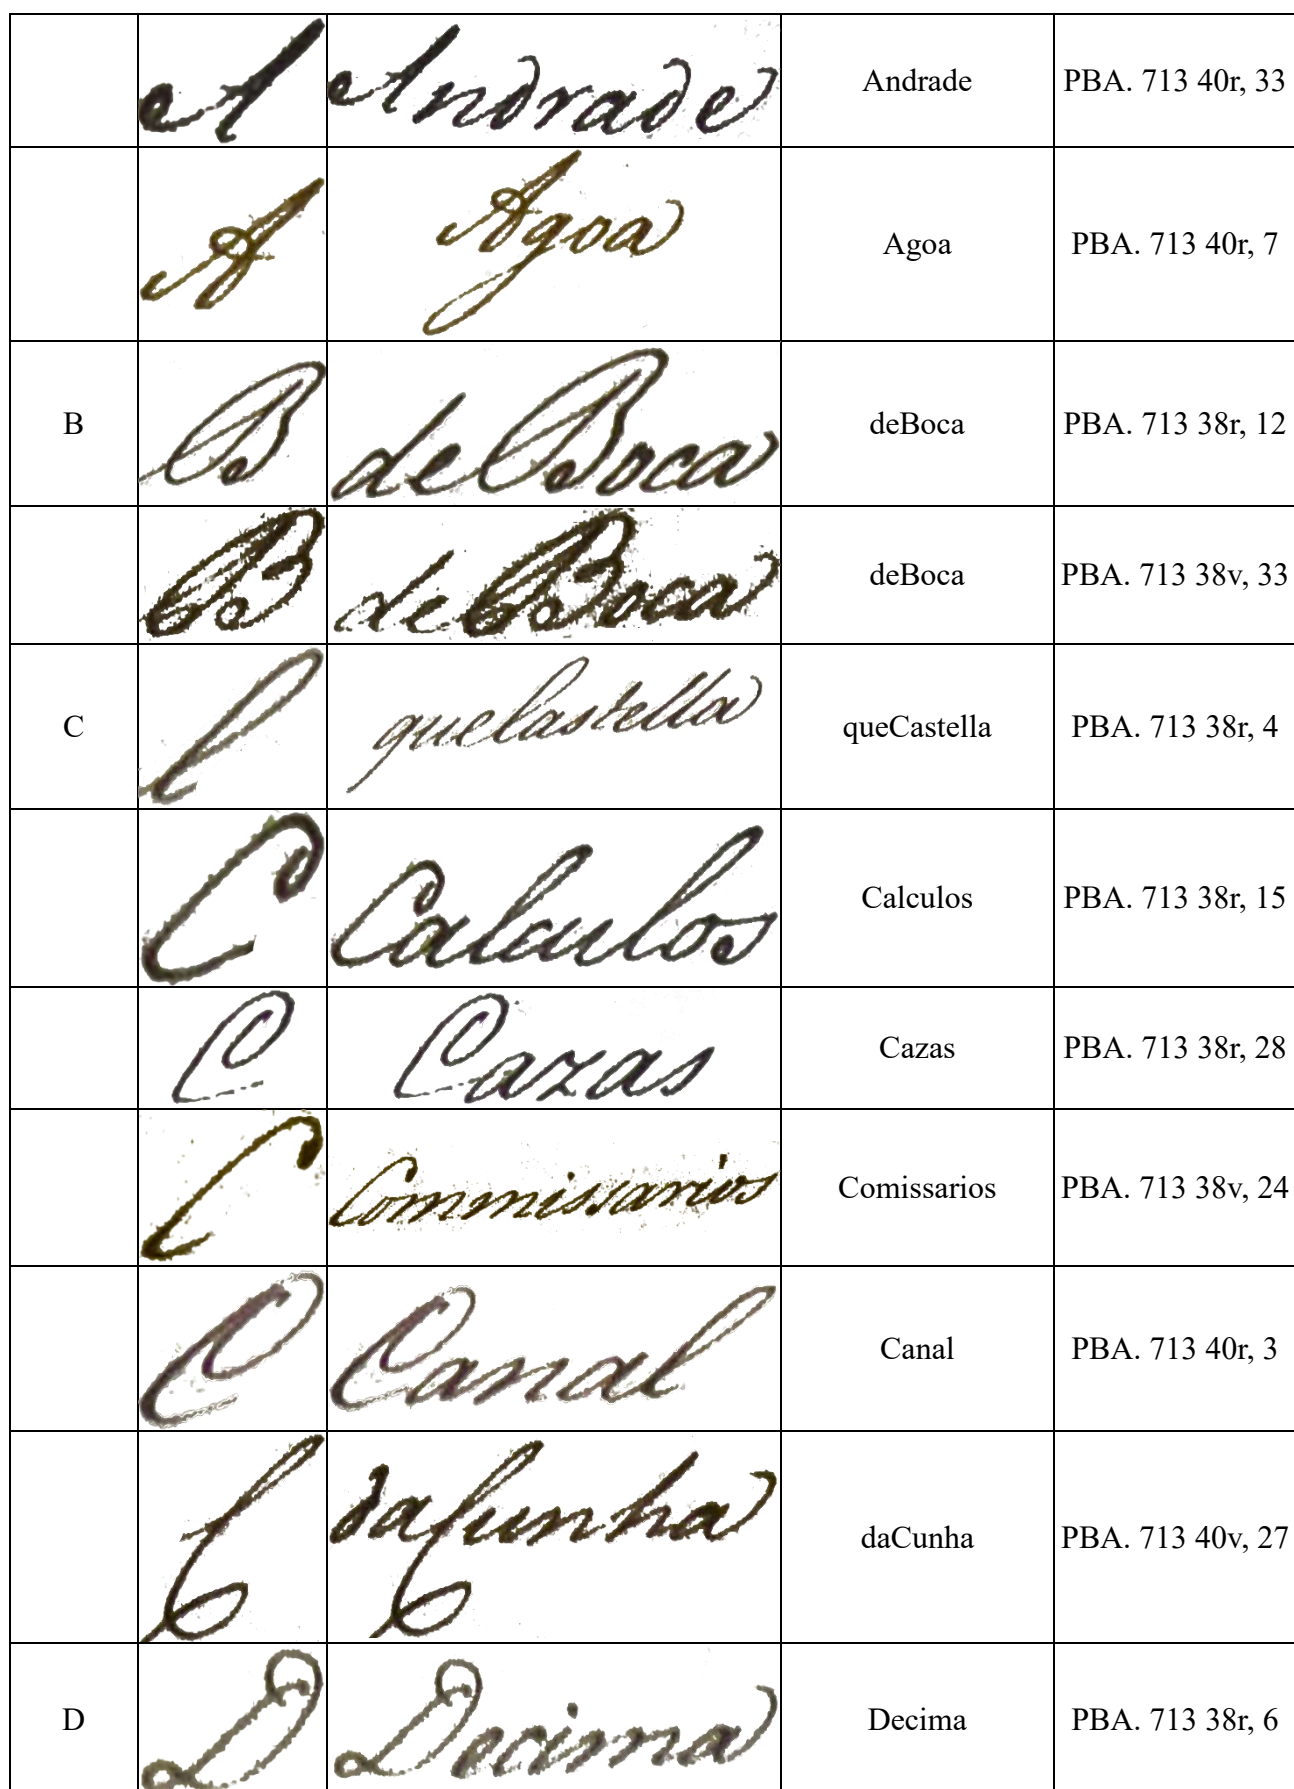 A Andrade Andrade PBA. 713 40r, 33
A Agoa Agoa PBA. 713 40r, 7
B B deBoca deBoca PBA. 713 38r, 12
B deBoca deBoca PBA. 713 38v, 33
C C queCastella queCastella PBA. 713 38r, 4
C Calculos Calculos PBA. 713 38r, 15
C Cazas Cazas PBA. 713 38r, 28
C Commissarios Comissarios PBA. 713 38v, 24
C Canal Canal PBA. 713 40r, 3
C daCunha daCunha PBA. 713 40v, 27
D D Decima Decima PBA. 713 38r, 6